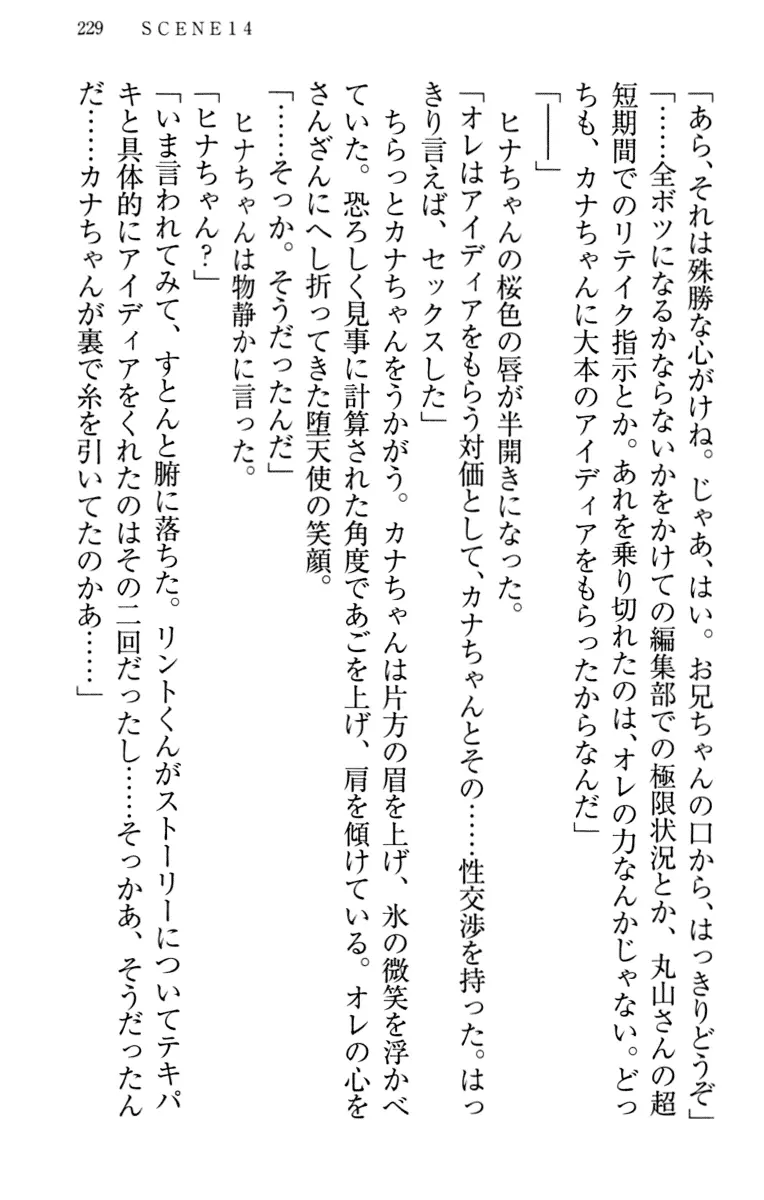 229　SCENE14
「あら、それは殊勝な心がけね。じゃあ、はい。お兄ちゃんの口から、はっきりどうぞ」
「……全ボツになるかならないかをかけての編集部での極限状況とか、丸山さんの超
短期間でのリテイク指示とか。あれを乗り切れたのは、オレの力なんかじゃない。どっ
ちも、カナちゃんに大本のアイディアをもらったからなんだ」
「――」
　ヒナちゃんの桜色の唇が半開きになった。
「オレはアイディアをもらう対価として、カナちゃんとその……性交渉を持った。はっ
きり言えば、セックスした」
　ちらっとカナちゃんをうかがう。カナちゃんは片方の眉を上げ、氷の微笑を浮かべ
ていた。恐ろしく見事に計算された角度であごを上げ、肩を傾けている。オレの心を
さんざんにへし折ってきた堕天使の笑顔。
「……そっか。そうだったんだ」
　ヒナちゃんは物静かに言った。
「ヒナちゃん？」
「いま言われてみて、すとんと腑に落ちた。リントくんがストーリーについてテキパ
キと具体的にアイディアをくれたのはその二回だったし……そっかあ、そうだったん
だ……カナちゃんが裏で糸を引いてたのかあ……」